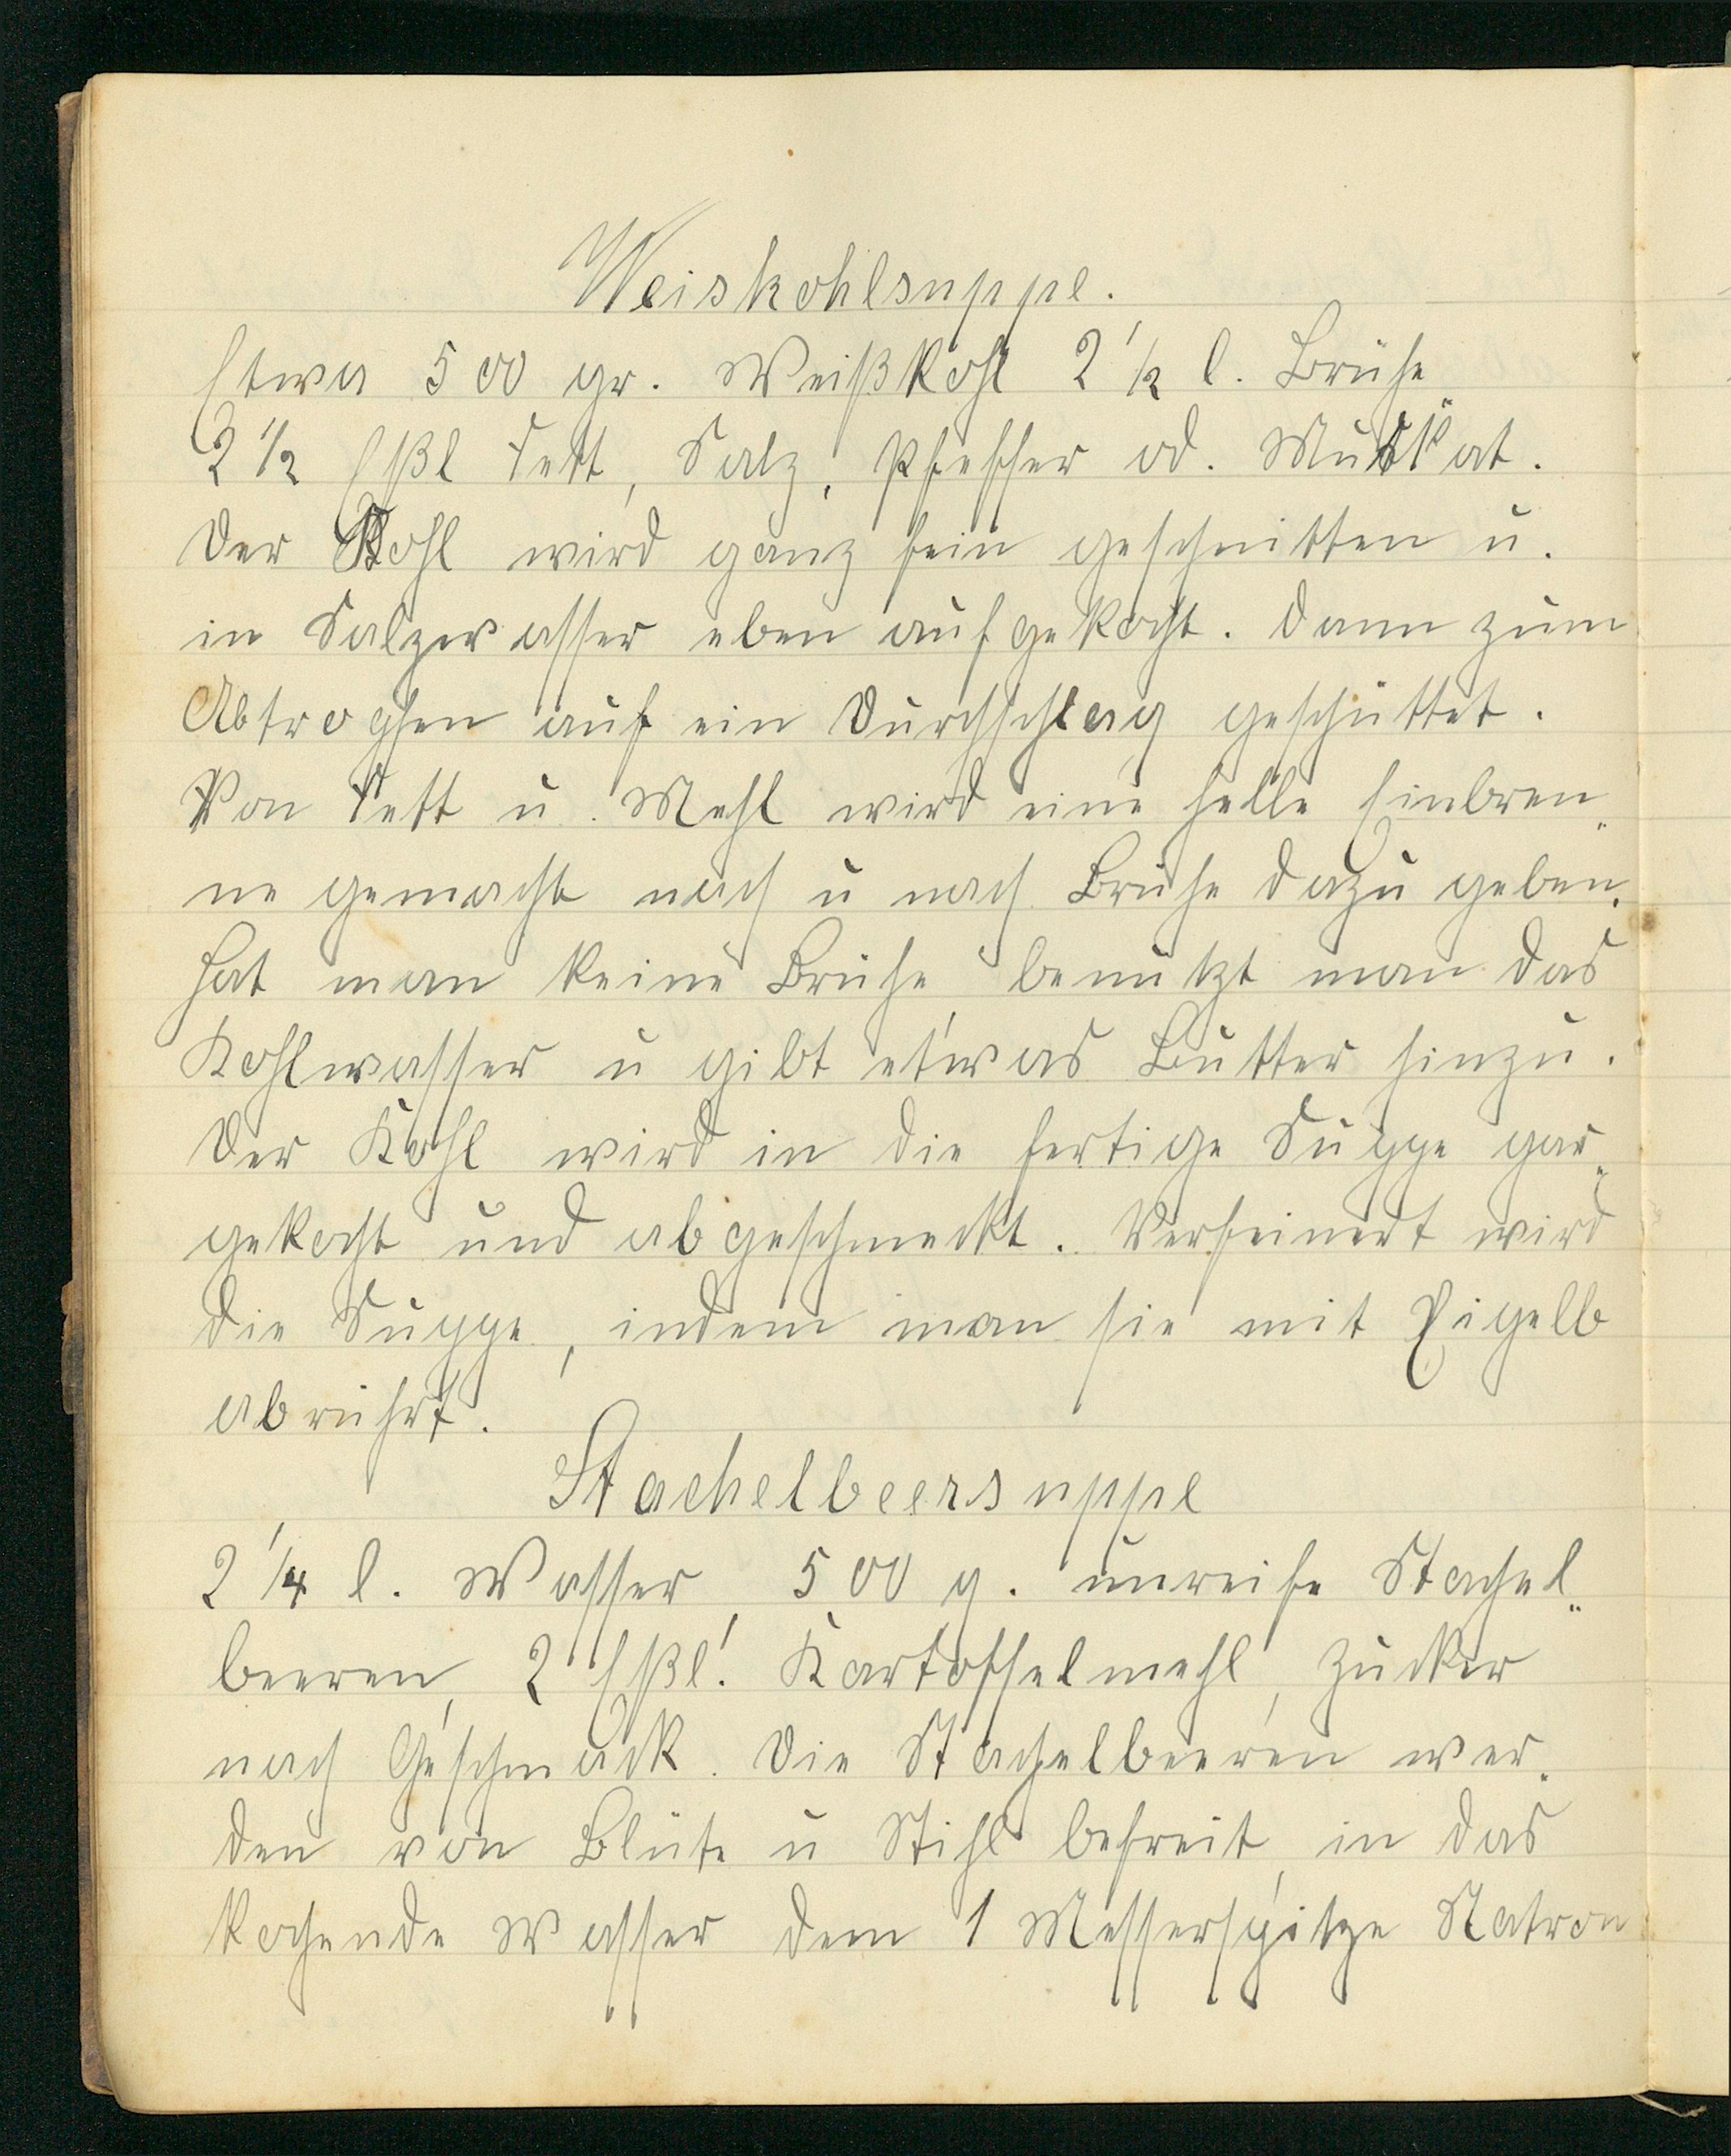 Weiskohlsuppe.
Etwa 500 gr. Weißkohl 2 1/2 l. Brühe
2 1/2 Eßl Fett, Salz, Pfeffer od. Muskat.
Der Kohl wird ganz fein geschnitten u.
in Salzwasser eben aufgekocht. Dann zum
Abtrochen auf ein Durchschlag geschüttet.
Von Fett u. Mehl wird eine helle Einbren-
ne gemacht nach u nach Brühe dazu geben.
Hat man keine Brühe benützt man das
Kohlwasser u gibt etwas Butter hinzu.
Der Kohl wird in die fertige Suppe gar-
gekocht und abgeschmeckt. Verfeinert wird
die Suppe, indem man sie mit Eigelb
abrührt.
Stachelbeersuppe
2 1/4 l. Wasser, 500 g. unreife Stachel-
beeren, 2 Eßl. Kartoffelmehl, Zucker
nach Geschmack. Die Stachelbeeren wer-
den von Blüte u Stihl befreit, in das
kochende Wasser dem 1 Messerspitze Natron